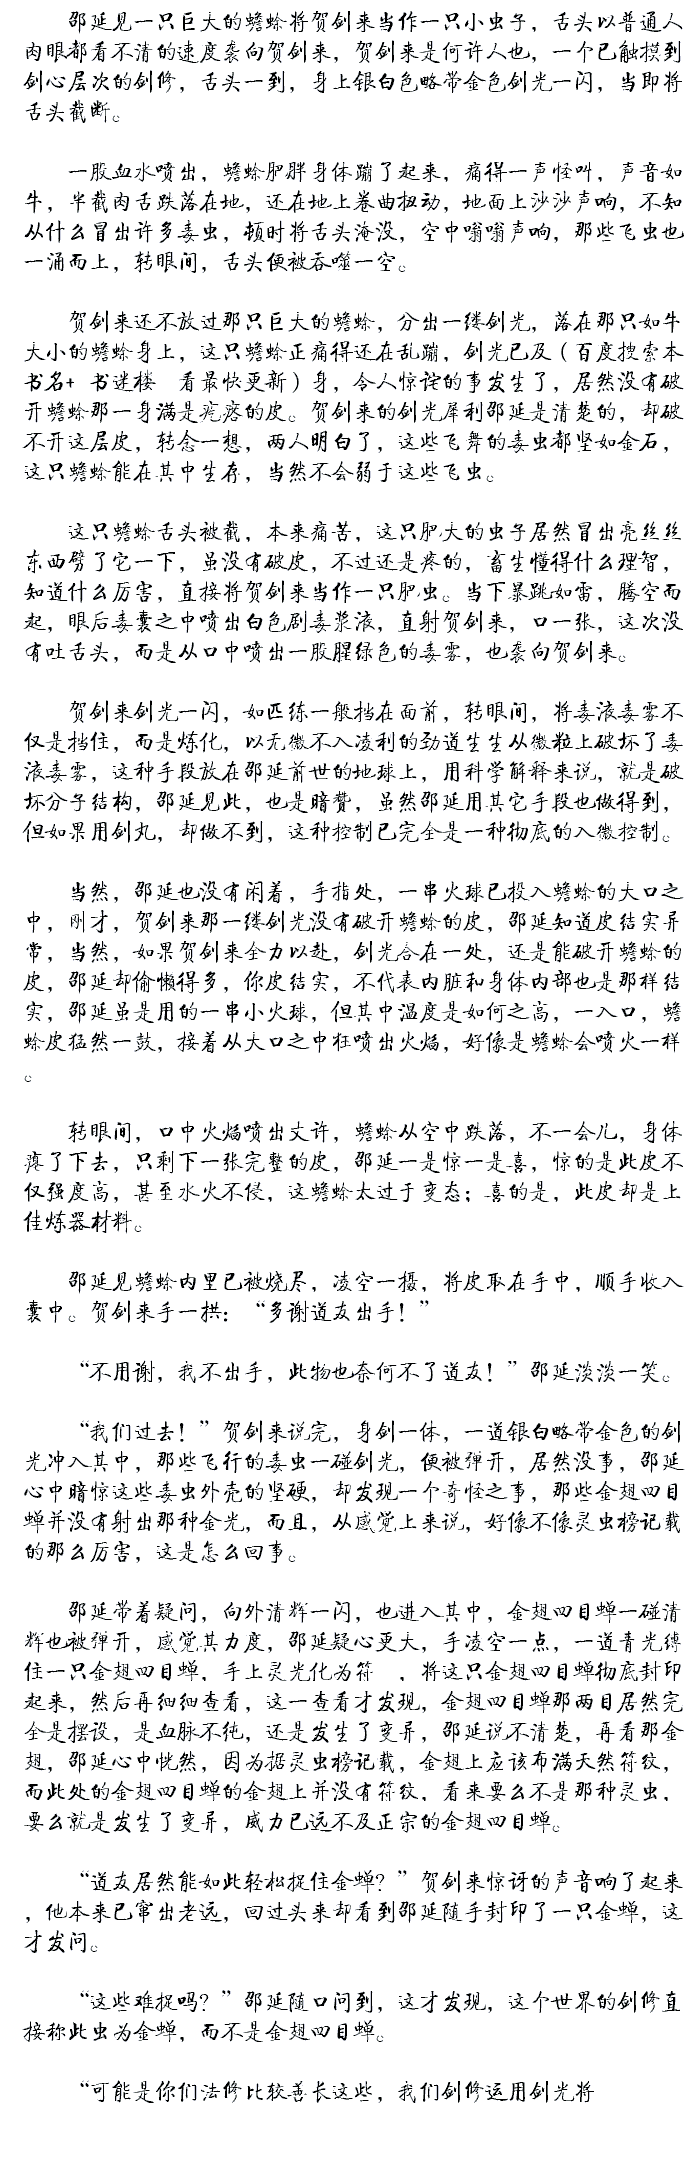 邵延见一只巨大的蟾蜍将贺剑来当作一只小虫子，舌头以普通人
肉眼都看不清的速度袭向贺剑来，贺剑来是何许人也，一个已触摸到
剑心层次的剑修，舌头一到，身上银白色略带金色剑光一闪，当即将
舌头截断。
一股血水喷出，蟾蜍肥胖身体蹦了起来，痛得一声怪叫，声音如
牛，半截肉舌跌落在地，还在地上卷曲扭动，地面上沙沙声响，不知
从什么冒出许多毒虫，顿时将舌头淹没，空中嗡嗡声响，那些飞虫也
一涌而上，转眼间，舌头便被吞噬一空。
贺剑来还不放过那只巨大的蟾蜍，分出一缕剑光，落在那只如牛
大小的蟾蜍身上，这只蟾蜍正痛得还在乱蹦，剑光已及（百度搜索本
书名+ 书迷楼 看最快更新）身，令人惊诧的事发生了，居然没有破
开蟾蜍那一身满是疙瘩的皮。贺剑来的剑光犀利邵延是清楚的，却破
不开这层皮，转念一想，两人明白了，这些飞舞的毒虫都坚如金石，
这只蟾蜍能在其中生存，当然不会弱于这些飞虫。
这只蟾蜍舌头被截，本来痛苦，这只肥大的虫子居然冒出亮丝丝
东西劈了它一下，虽没有破皮，不过还是疼的，畜生懂得什么理智，
知道什么厉害，直接将贺剑来当作一只肥虫。当下暴跳如雷，腾空而
起，眼后毒囊之中喷出白色剧毒浆液，直射贺剑来，口一张，这次没
有吐舌头，而是从口中喷出一股腥绿色的毒雾，也袭向贺剑来。
贺剑来剑光一闪，如匹练一般挡在面前，转眼间，将毒液毒雾不
仅是挡住，而是炼化，以无微不入凌利的劲道生生从微粒上破坏了毒
液毒雾，这种手段放在邵延前世的地球上，用科学解释来说，就是破
坏分子结构，邵延见此，也是暗赞，虽然邵延用其它手段也做得到，
但如果用剑丸，却做不到，这种控制已完全是一种彻底的入微控制。
当然，邵延也没有闲着，手指处，一串火球已投入蟾蜍的大口之
中，刚才，贺剑来那一缕剑光没有破开蟾蜍的皮，邵延知道皮结实异
常，当然，如果贺剑来全力以赴，剑光合在一处，还是能破开蟾蜍的
皮，邵延却偷懒得多，你皮结实，不代表内脏和身体内部也是那样结
实，邵延虽是用的一串小火球，但其中温度是如何之高，一入口，蟾
蜍皮猛然一鼓，接着从大口之中狂喷出火焰，好像是蟾蜍会喷火一样
。
转眼间，口中火焰喷出丈许，蟾蜍从空中跌落，不一会儿，身体
瘪了下去，只剩下一张完整的皮，邵延一是惊一是喜，惊的是此皮不
仅强度高，甚至水火不侵，这蟾蜍太过于变态；喜的是，此皮却是上
佳炼器材料。
邵延见蟾蜍内里已被烧尽，凌空一摄，将皮取在手中，顺手收入
囊中。贺剑来手一拱：“多谢道友出手！”
“不用谢，我不出手，此物也奈何不了道友！”邵延淡淡一笑。
“我们过去！”贺剑来说完，身剑一体，一道银白略带金色的剑
光冲入其中，那些飞行的毒虫一碰剑光，便被弹开，居然没事，邵延
心中暗惊这些毒虫外壳的坚硬，却发现一个奇怪之事，那些金翅四目
蝉并没有射出那种金光，而且，从感觉上来说，好像不像灵虫榜记载
的那么厉害，这是怎么回事。
邵延带着疑问，向外清辉一闪，也进入其中，金翅四目蝉一碰清
辉也被弹开，感觉其力度，邵延疑心更大，手凌空一点，一道青光缚
住一只金翅四目蝉，手上灵光化为符 ，将这只金翅四目蝉彻底封印
起来，然后再细细查看，这一查看才发现，金翅四目蝉那两目居然完
全是摆设，是血脉不纯，还是发生了变异，邵延说不清楚，再看那金
翅，邵延心中恍然，因为据灵虫榜记载，金翅上应该布满天然符纹，
而此处的金翅四目蝉的金翅上并没有符纹，看来要么不是那种灵虫，
要么就是发生了变异，威力已远不及正宗的金翅四目蝉。
“道友居然能如此轻松捉住金蝉？”贺剑来惊讶的声音响了起来
，他本来已窜出老远，回过头来却看到邵延随手封印了一只金蝉，这
才发问。
“这些难捉吗？”邵延随口问到，这才发现，这个世界的剑修直
接称此虫为金蝉，而不是金翅四目蝉。
“可能是你们法修比较善长这些，我们剑修运用剑光将